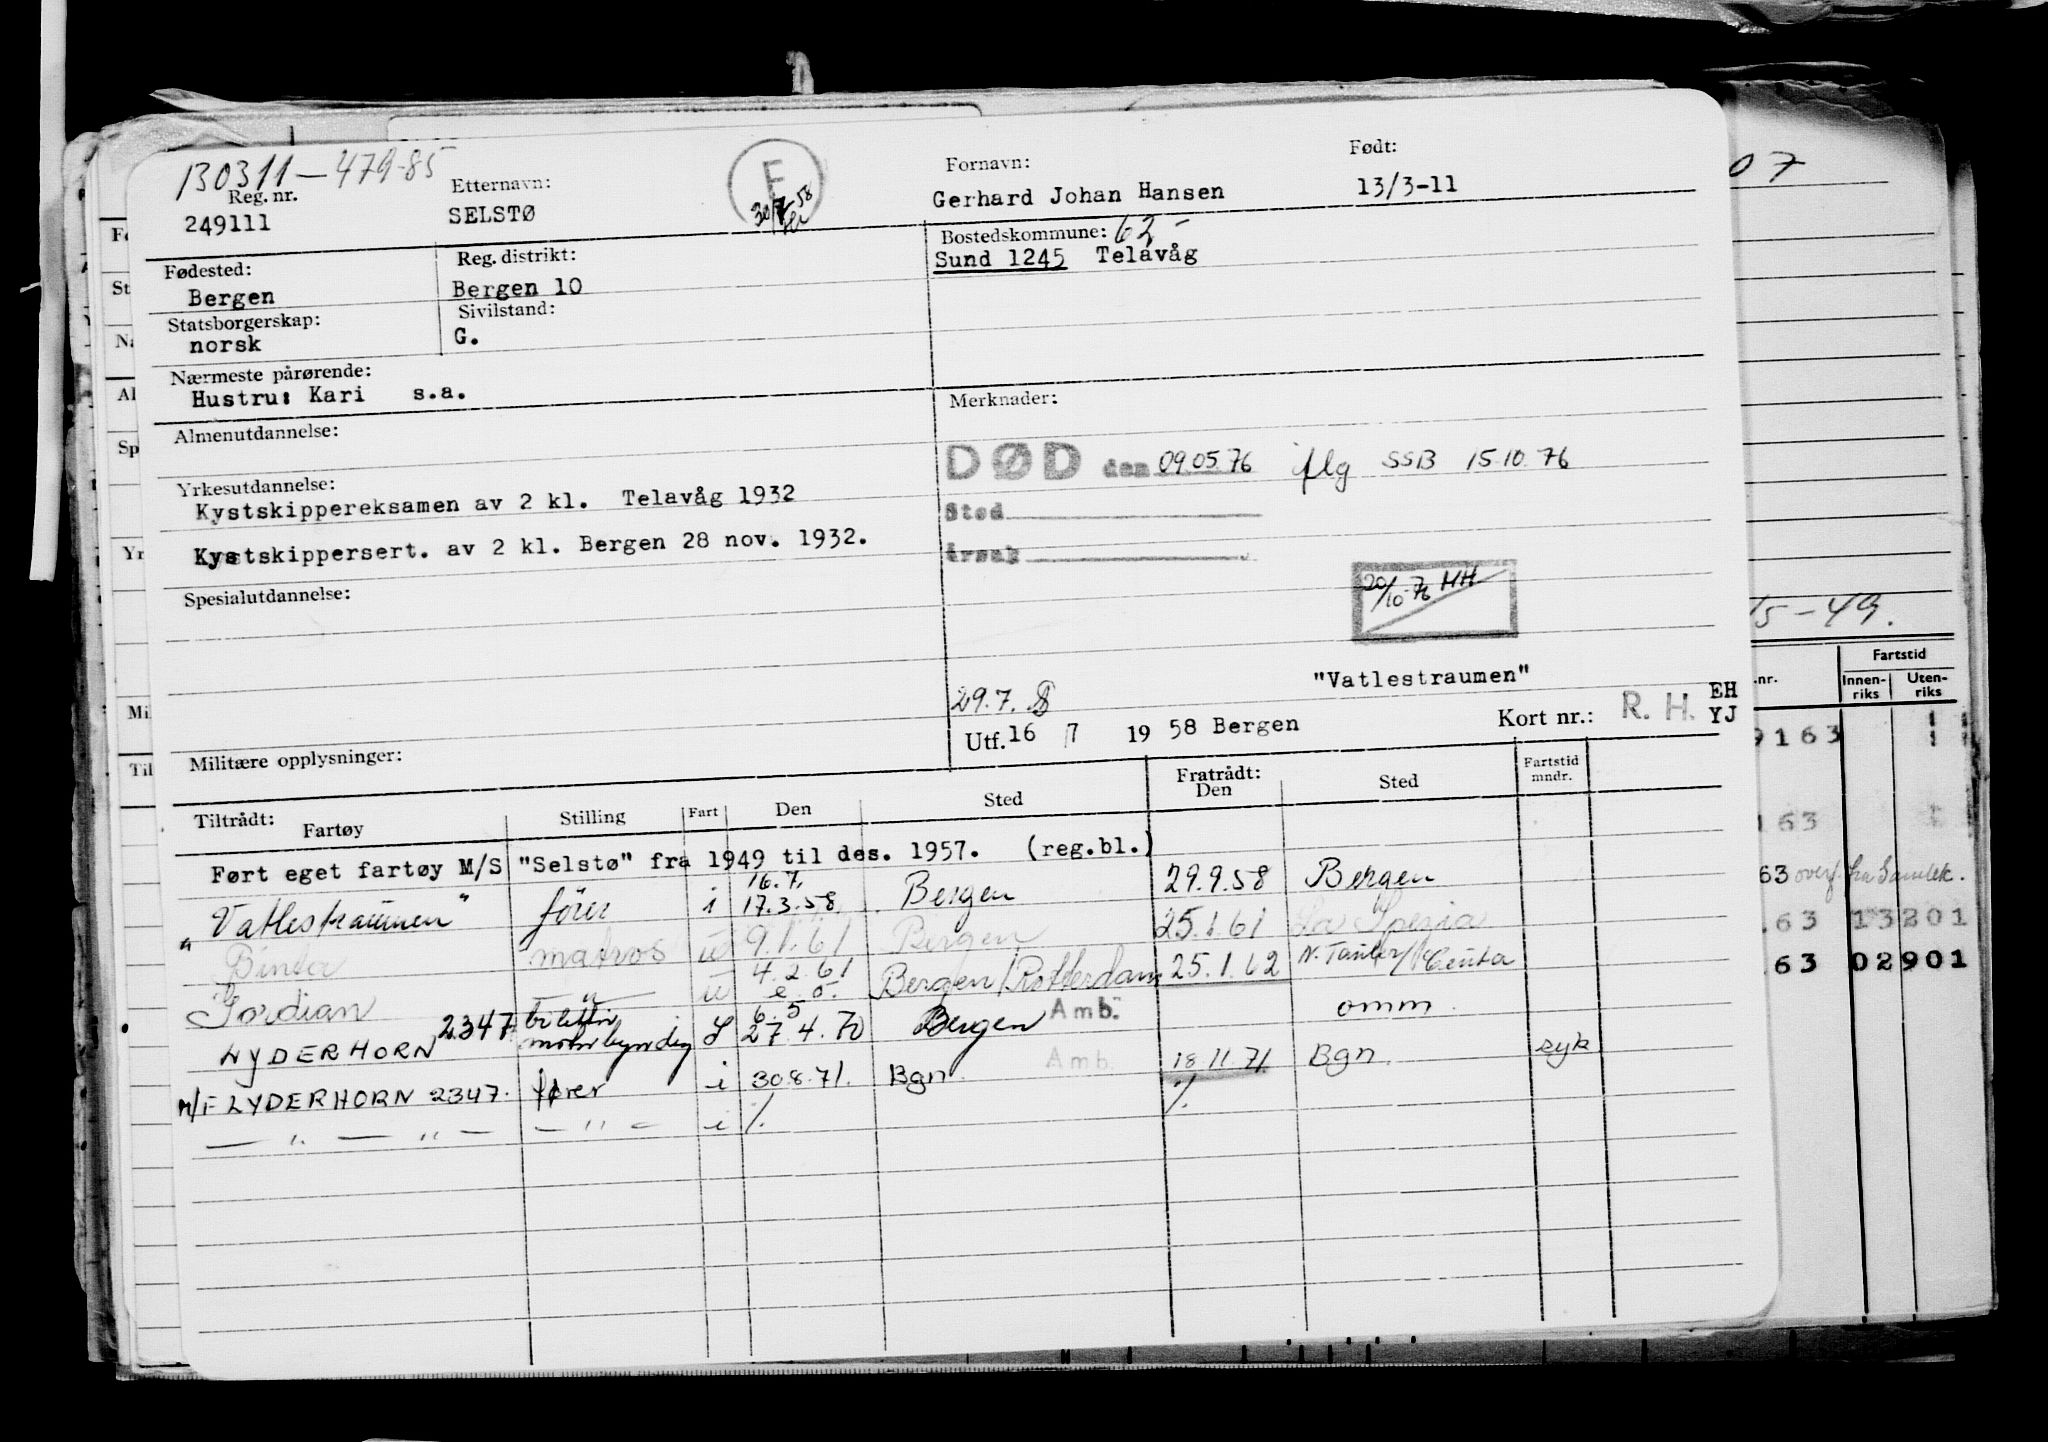 130311-479-85
Reg. nr.
249111
Etternavn:
SELSTØ
F
30/7-58
Fornavn:
Gerhard Johan Hansen
Født:
13/3-11
Fødested:
Bergen
Reg. distrikt:
Bergen 10
Bostedskommune: 62-
Sund 1245 Telavåg
Statsborgerskap:
norsk
Sivilstand:
G.
Nærmeste pårørende:
Hustru: Kari s.a.
Almenutdannelse:
Yrkesutdannelse:
Kystskippereksamen av 2 kl. Telavåg 1932
Kystskippersert. av 2 kl. Bergen 28 nov. 1932.
Spesialutdannelse:
Militære opplysninger:
Merknader:
DØD den 09.05.76 iflg SSB 15.10.76
Sted
Årsak
20/10-76 HH
"Vatlestraumen"
29.7.
Utf. 16 /7 19 58 Bergen
Kort nr.: R. H. EH
YJ
Tiltrådt:
Fartøy
Stilling
Fart
Den
Sted
Fratrådt:
Den
Sted
Fartstid
mndr.
Ført eget fartøy M/S "Selstø" fra 1949 til des. 1957. (reg.bl.)
"Vatlestraumen" fører i 16.7. 17.3.58. Bergen 29.9.58 Bergen
Binta matros u 9.1.61 Bergen 25.1.61 La Spezia
Gordian — " — u 4.2.61 e.o. Bergen/Rotterdam 25.1.62 N. Tanker/Ceuta
LYDERHORN 2347 billettør motorkyndig L 6.5 27.4.70 Bergen Amb. omm.
M/F LYDERHORN 2347. fører i 30.8.71. Bgn. Amb. 18.11.71. Bgn. syk
— " — " — — " — i %. %.
07
15-49.
.nr.
Fartstid
Innen-
riks
Uten-
riks
9163
163
63 overf. fra Samlek.
.63 13201
.63 02901